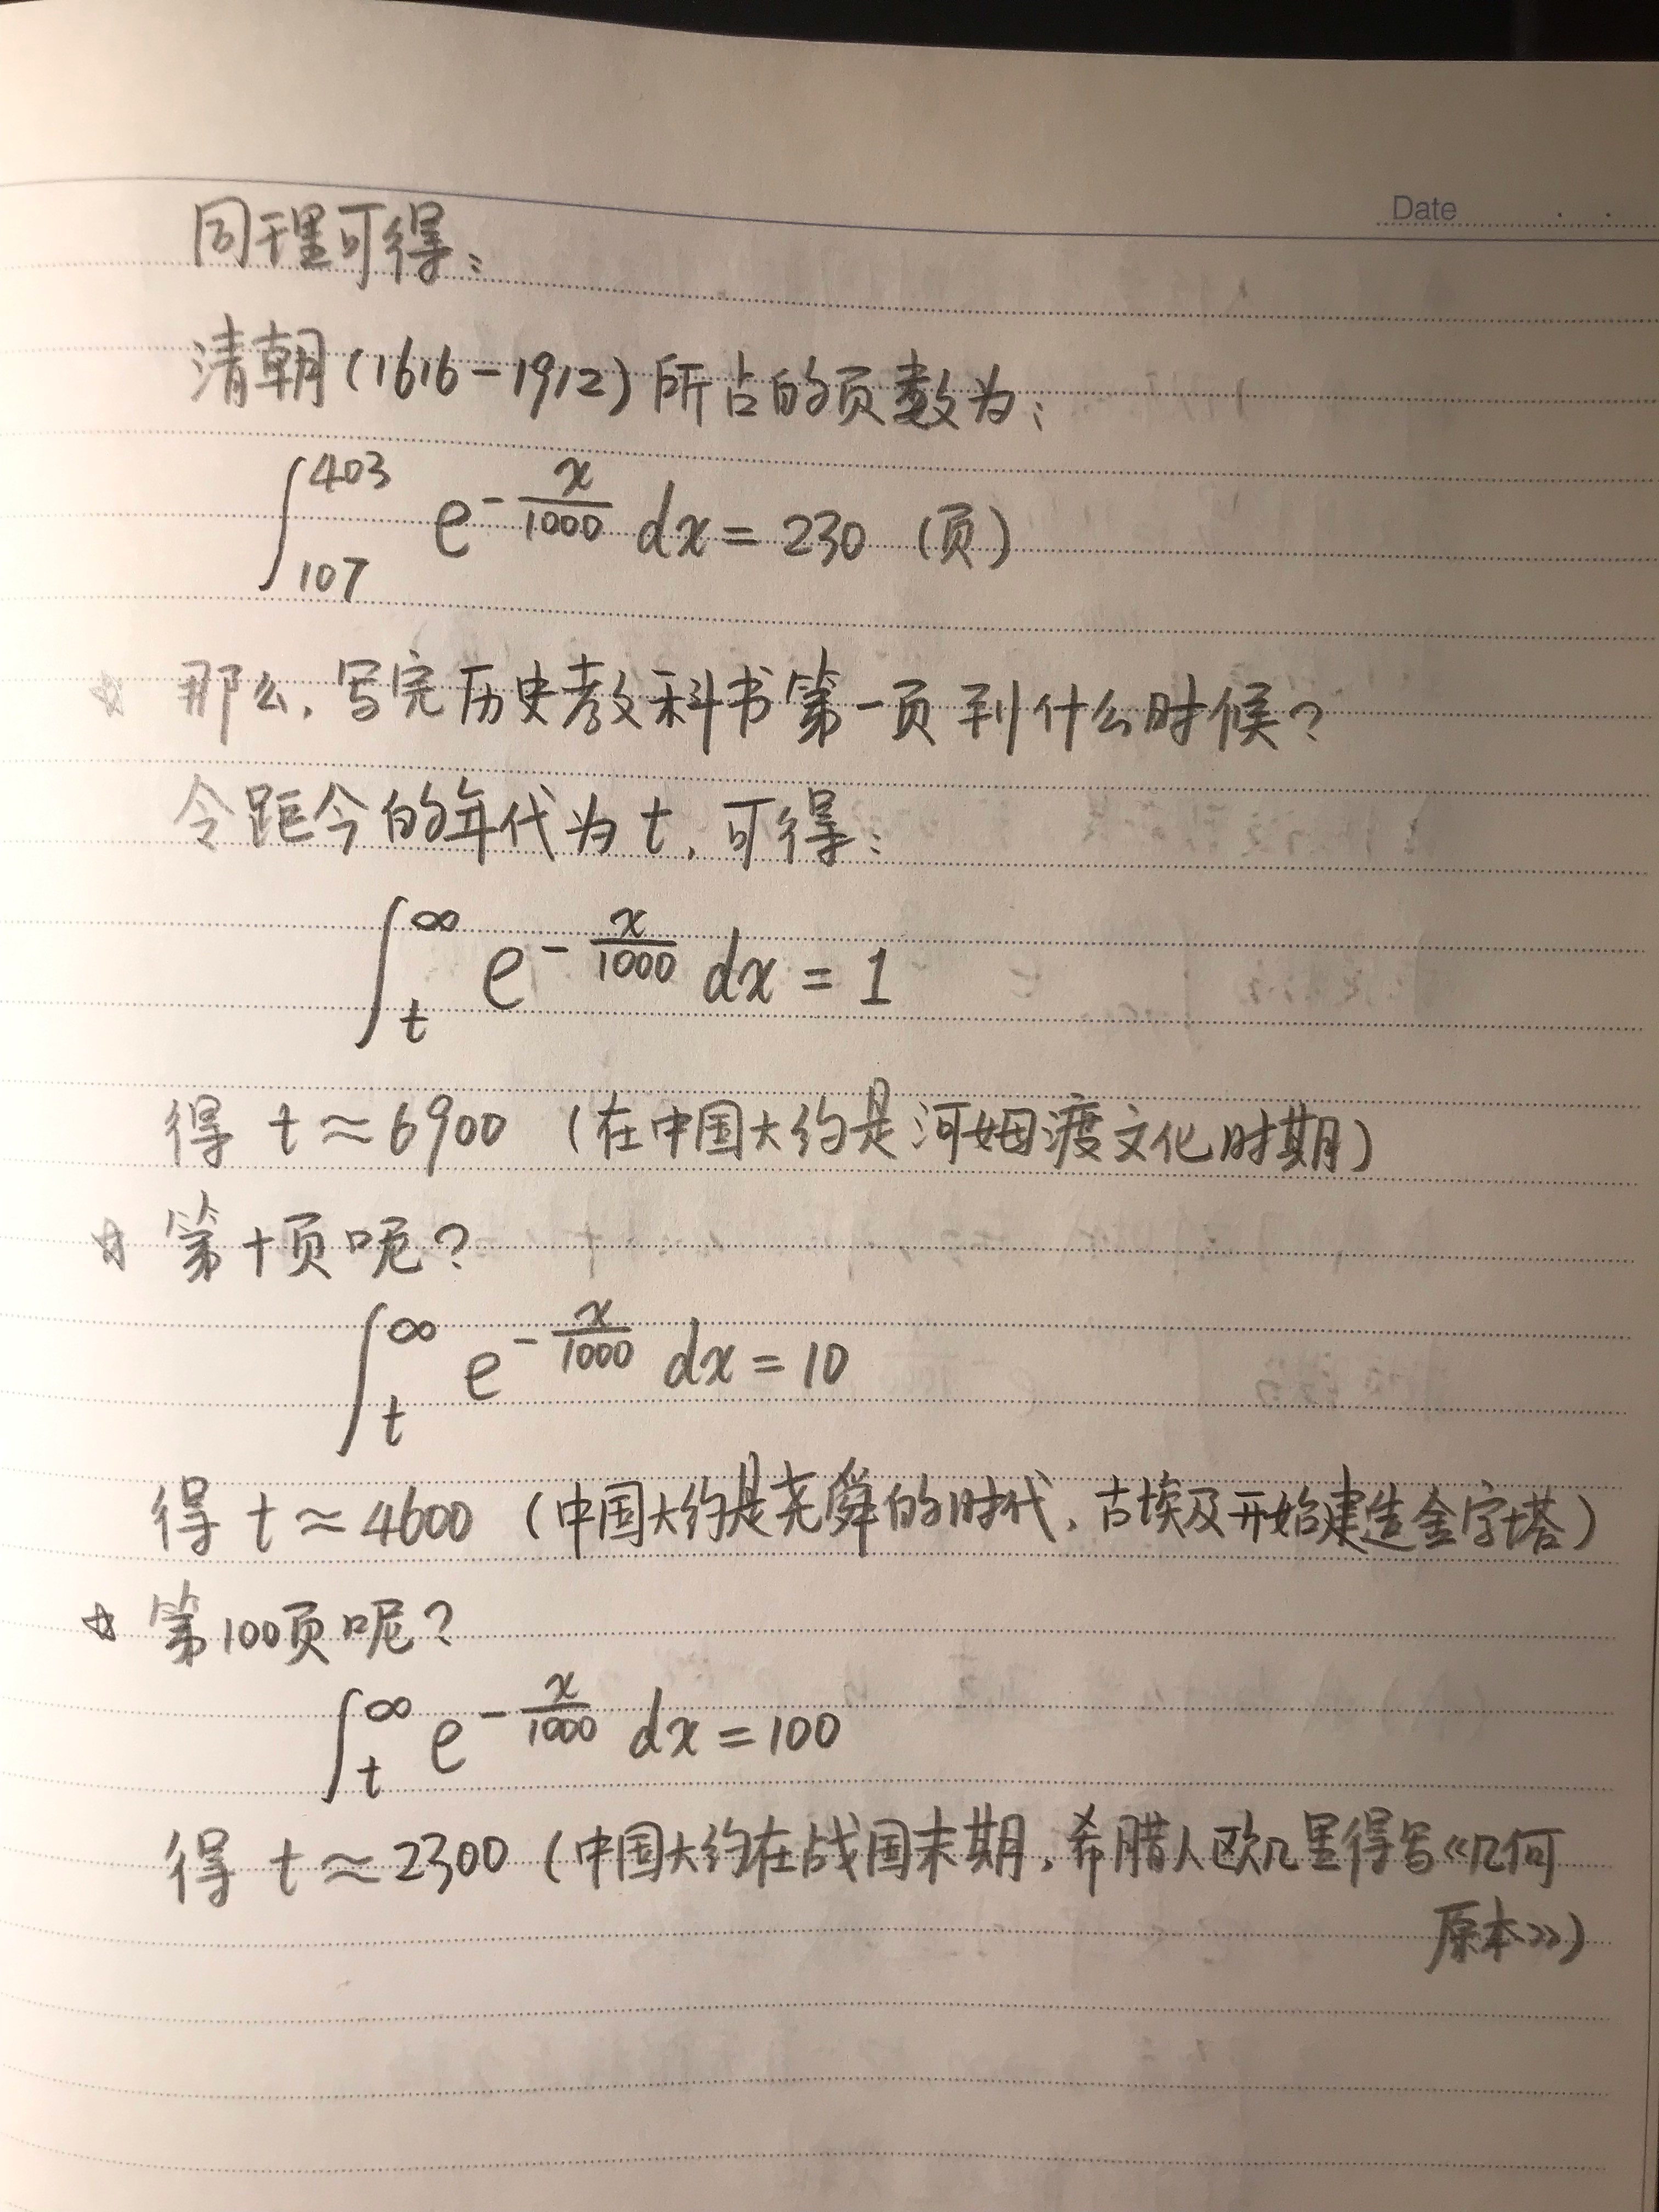 Date
同理可得：
清朝(1616-1912)所占的页数为：
∫_{107}^{403} e^{-\frac{x}{1000}} dx = 230 (页)
☆ 那么,写完历史教科书第一页到什么时候?
令距今的年代为t,可得：
∫_{t}^{∞} e^{-\frac{x}{1000}} dx = 1
得 t≈6900 (在中国大约是河姆渡文化时期)
☆ 第十页呢?
∫_{t}^{∞} e^{-\frac{x}{1000}} dx = 10
得 t≈4600 (中国大约是尧舜的时代,古埃及开始建造金字塔)
☆ 第100页呢?
∫_{t}^{∞} e^{-\frac{x}{1000}} dx = 100
得 t≈2300 (中国大约在战国末期,希腊人欧几里得写《几何
原本》)